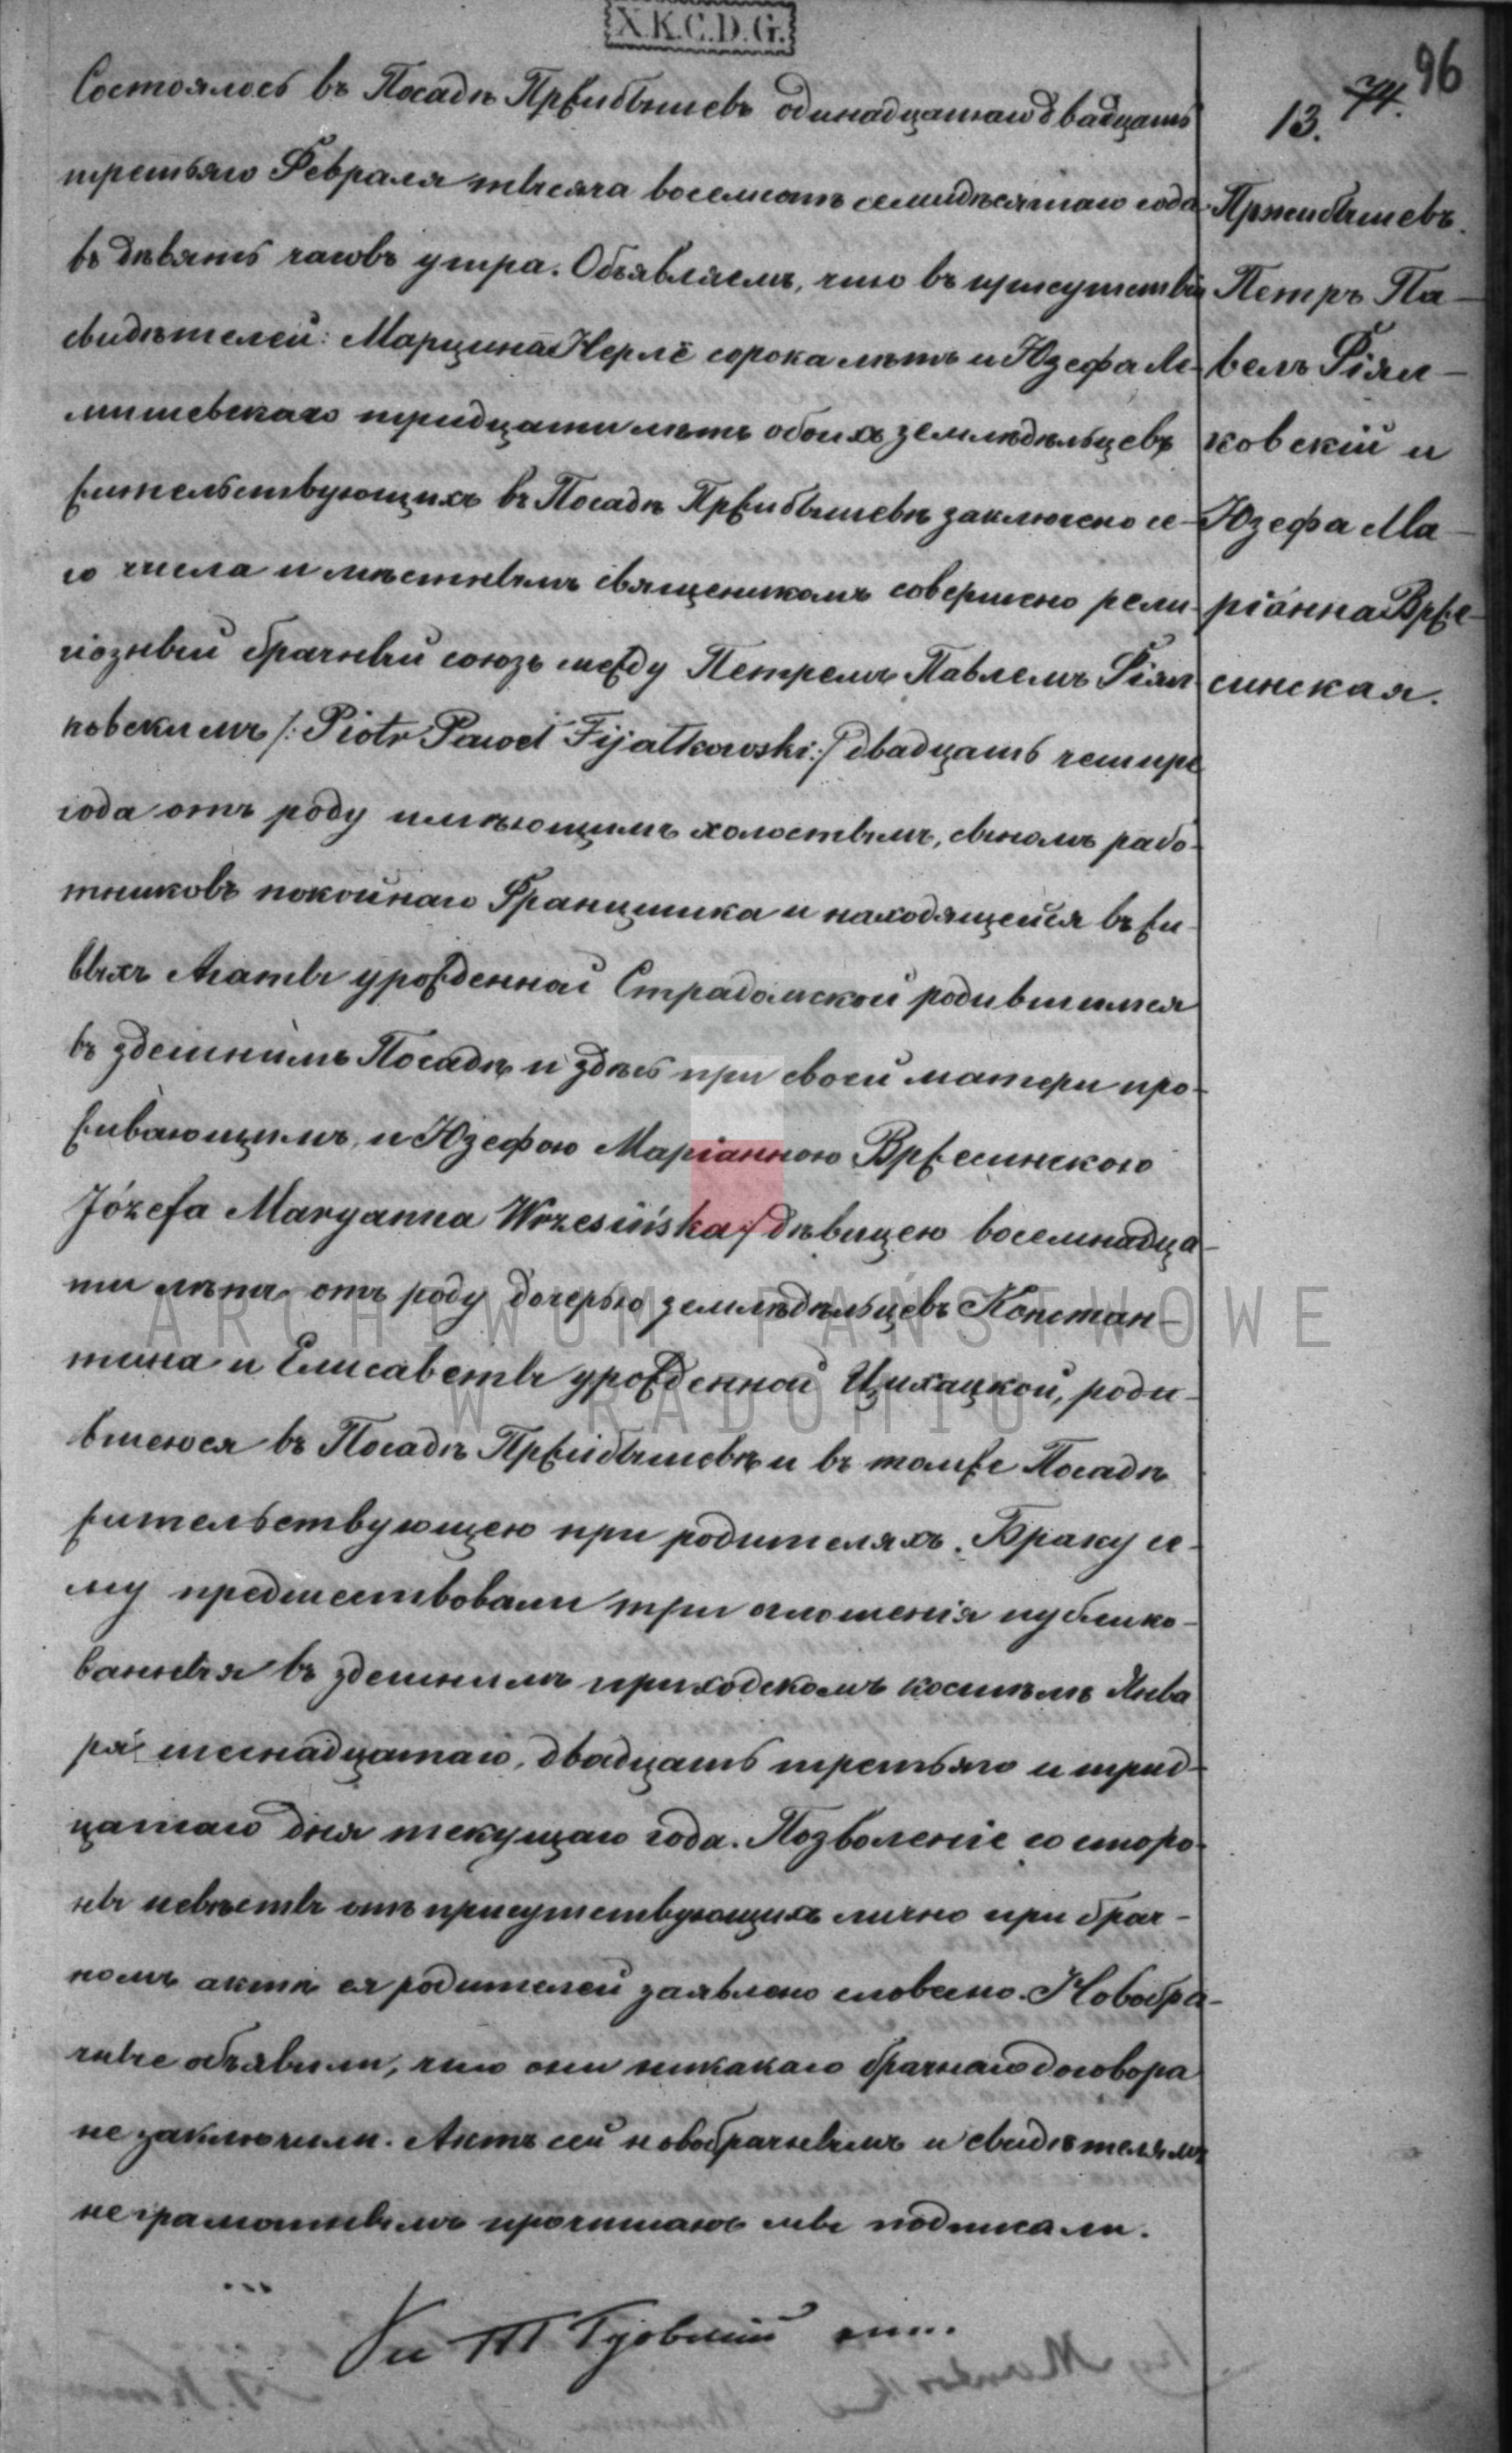 X.K.C.D.G.
96
74.
13.
Состоялось въ Посадѣ Пржибышевъ одинадцатаго двадцать
третьяго Февраля тысяча восемсотъ семидѣсятаго года
въ дѣвять часовъ утра. Объявляемъ, что въ присутствіи
свидѣтелей: Марцина Нерлё сорока лѣтъ и Юзефа Ми-
мишевскаго тридцати лѣтъ обоихъ земледѣльцевъ
жительствующихъ въ Посадѣ Пржибышевѣ заключено се-
го числа и мѣстнымъ священикомъ совершено рели-
гіозный брачный союзъ между Петремъ Павлемъ Фіял
ковскимъ /: Piotr Paweł Fijałkowski :/ двадцать четыре
года отъ роду имѣющимъ холостымъ, сыномъ рабо-
тниковъ покойнаго Францишка и находящейся въ жи-
выхъ Агаты урожденной Страдомской родившимся
въ здешнимъ Посадѣ и здѣсь при своей матери про-
живающимъ, и Юзефою Маріанною Вржесинскою
Józefa Maryanna Wrzesińska :/ дѣвицею восемнадца-
ти лѣтъ отъ роду дочерью земледѣльцевъ Констан-
тина и Елисаветы урожденной Цихацкой, роди-
вшеюся въ Посадѣ Пржибышевѣ и въ томже Посадѣ
жительствующею при родителяхъ. Браку се-
му предшествовали три оглошенія публико-
ванныя въ здешнимъ приходскомъ костелѣ Янва
ря шеснадцатаго, двадцать третьяго и трид-
цатаго дня текущаго года. Позволеніе со сторо-
ны невѣсты отъ присутствующихъ лично при брач-
номъ актѣ ея родителей заявлено словесно. Новобра-
чные объявили, что они никакаго брачнаго договора
не заключили. Актъ сей новобрачнымъ и свидѣтелямъ
неграмотнымъ прочитавъ мы подписали.
Пржибышевъ.
Петръ Па-
велъ Фіял-
ковскій и
Юзефа Ма-
ріанна Врже-
синская.
ARCHIWUM PAŃSTWOWE
W RADOMIU